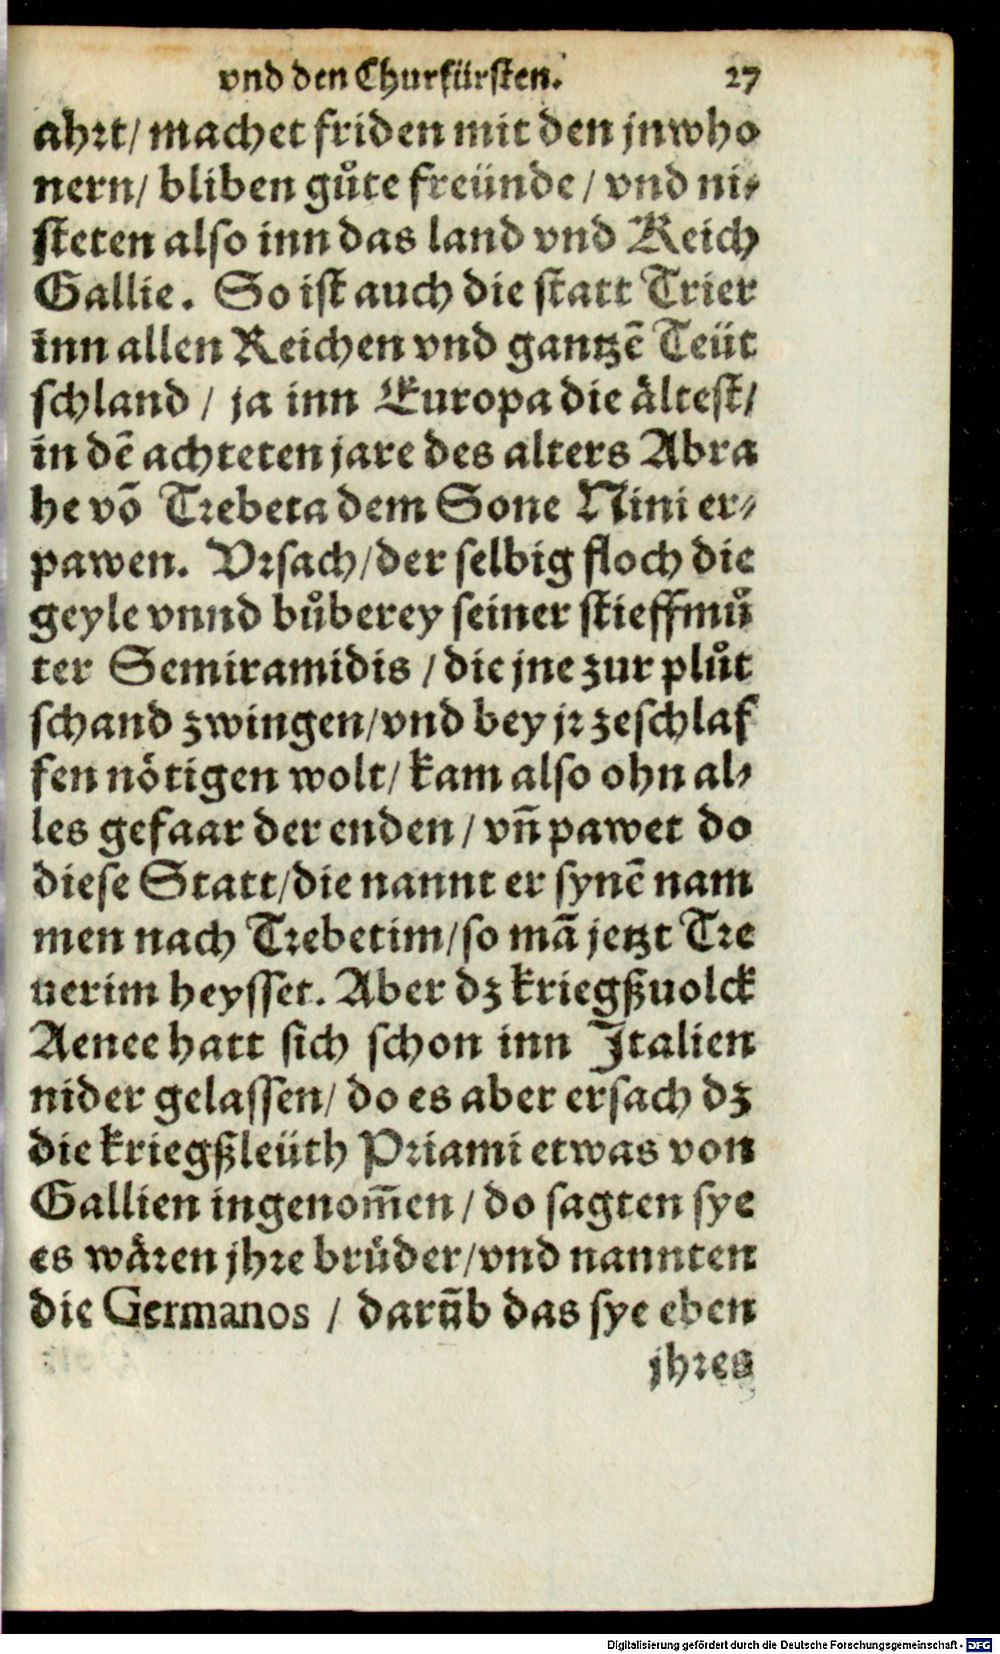 vnd den Churfürsten. 27
ahrt/ machet friden mit den jnwho
nern/ bliben gůte freünde / vnd ni-
steten also inn das land vnd Reich
Gallie. So ist auch die statt Trier
inn allen Reichen vnd gantzē Teüt
schland / ja inn Europa die ältest/
in dē achteten jare des alters Abra
he vō Trebeta dem Sone Nini er-
pawen. Vrsach/der selbig floch die
geyle vnnd bůberey seiner stieffmů
ter Semiramidis / die jne zur plůt
schand zwingen/vnd bey jr zeschlaf
fen nötigen wolt/ kam also ohn al-
les gefaar der enden / vñ pawet do
diese Statt/die nannt er synē nam
men nach Trebetim/so mā jetzt Tre
uerim heysset. Aber dz kriegßuolck
Aenee hatt sich schon inn Italien
nider gelassen/ do es aber ersach dz
die kriegßleüth Priami etwas von
Gallien ingenom̄en / do sagten sye
es wären jhre brůder/vnd nannten
die Germanos / darūb das sye eben
jhres
Digitalisierung gefördert durch die Deutsche Forschungsgemeinschaft - DFG